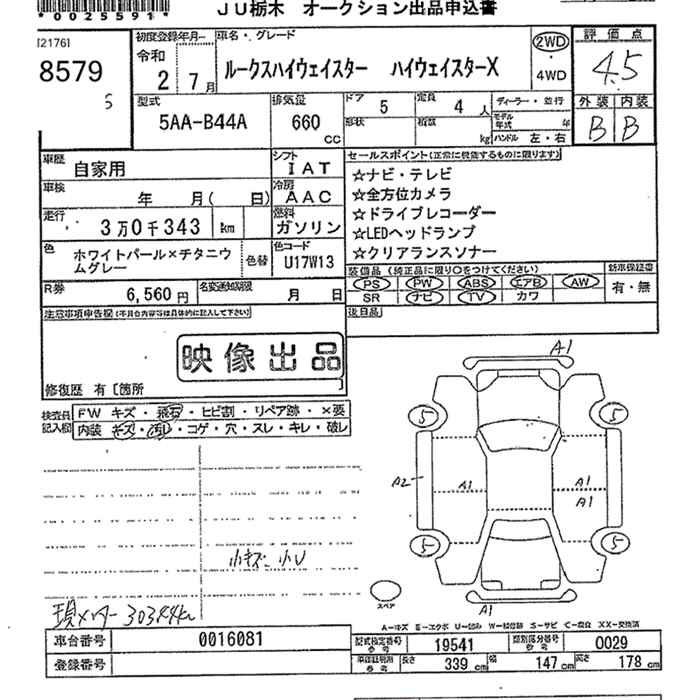 *0025591*
JU栃木 オークション出品申込書
[2176]
8579
5
初度登録年月
令和
2 7月
車名・グレード
ルークスハイウェイスター ハイウェイスターX
2WD
4WD
評価点
4.5
型式
5AA-B44A
排気量
660
cc
ドア 5
定員 4人
形状
積載 kg
ディーラー・並行
モデル年式 年
ハンドル 左・右
外装 内装
B B
車歴
自家用
シフト
IAT
セールスポイント(正常に機能するものに限ります)
車検
年 月( 日)
冷房
AAC
☆ナビ・テレビ
☆全方位カメラ
走行
3万0千343 km
燃料
ガソリン
☆ドライブレコーダー
☆LEDヘッドランプ
☆クリアランスソナー
色
ホワイトパール×チタニウ
ムグレー
色替
色コード
U17W13
装備品(純正品に限り○をつけてください)
新車保証書
PS PW ABS エアB AW
有・無
SR ナビ TV カワ
R券
6,560円
名変通知期限
月 日
注意事項申告欄(不具合内容等は具体的に記入して下さい)
後日品
映像出品
修復歴 有 [箇所 ]
検査員
記入欄
FW キズ・飛石・ヒビ割・リペア跡・×要
内装 キズ・汚レ・コゲ・穴・スレ・キレ・破レ
A1
5 5
A2
A1 A1
A1
5 5
A1
スペア
小キズ、小U
現メーター 30344km
A-キズ E-エクボ U-凹み W-補修跡 S-サビ C-腐食 XX-交換済
車台番号 0016081
登録番号
型式指定番号
参考
19541
類別区分番号
参考
0029
車検証明別
参考
長さ 339cm 幅 147cm 高さ 178cm